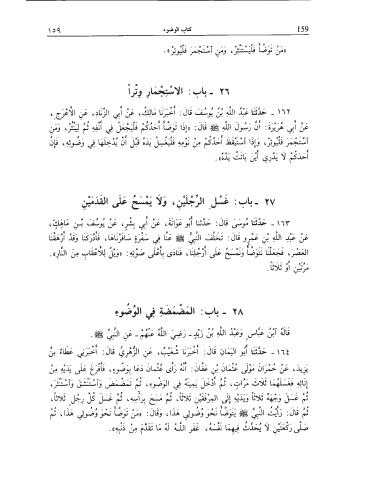 159 كتاب الوضوء ١٥٩
«مَنْ تَوَضَّأَ فَلْيَسْتَنْثِرْ، وَمَنِ اسْتَجْمَرَ فَلْيُوتِرْ».
٢٦ - باب: الاسْتِجْمَارِ وِتْراً
١٦٢ - حَدَّثَنَا عَبْدُ اللَّهِ بْنُ يُوسُفَ قَالَ: أَخْبَرَنَا مَالِكٌ، عَنْ أَبِي الزِّنَادِ، عَنِ الأَعْرَجِ،
عَنْ أَبِي هُرَيْرَةَ: أَنَّ رَسُولَ اللَّهِ ﷺ قَالَ: «إِذَا تَوَضَّأَ أَحَدُكُمْ فَلْيَجْعَلْ فِي أَنْفِهِ ثُمَّ لِيَنْثُرْ، وَمَنِ
اسْتَجْمَرَ فَلْيُوتِرْ، وَإِذَا اسْتَيْقَظَ أَحَدُكُمْ مِنْ نَوْمِهِ فَلْيَغْسِلْ يَدَهُ قَبْلَ أَنْ يُدْخِلَهَا فِي وَضُوئِهِ، فَإِنَّ
أَحَدَكُمْ لاَ يَدْرِي أَيْنَ بَاتَتْ يَدُهُ».
٢٧ - باب: غَسْلِ الرِّجْلَيْنِ، وَلاَ يَمْسَحُ عَلَى القَدَمَيْنِ
١٦٣ - حَدَّثَنَا مُوسَى قَالَ: حَدَّثَنَا أَبُو عَوَانَةَ، عَنْ أَبِي بِشْرٍ، عَنْ يُوسُفَ بْنِ مَاهِكَ،
عَنْ عَبْدِ اللَّهِ بْنِ عَمْرٍو قَالَ: تَخَلَّفَ النَّبِيُّ ﷺ عَنَّا فِي سَفْرَةٍ سَافَرْنَاهَا، فَأَدْرَكَنَا وَقَدْ أَرْهَقْنَا
العَصْرَ، فَجَعَلْنَا نَتَوَضَّأُ وَنَمْسَحُ عَلَى أَرْجُلِنَا، فَنَادَى بِأَعْلَى صَوْتِهِ: «وَيْلٌ لِلأَعْقَابِ مِنَ النَّارِ».
مَرَّتَيْنِ أَوْ ثَلاَثاً.
٢٨ - باب: المَضْمَضَةِ فِي الوُضُوءِ
قَالَهُ ابْنُ عَبَّاسٍ وَعَبْدُ اللَّهِ بْنُ زَيْدٍ - رَضِيَ اللَّهُ عَنْهُمْ - عَنِ النَّبِيِّ ﷺ.
١٦٤ - حَدَّثَنَا أَبُو اليَمَانِ قَالَ: أَخْبَرَنَا شُعَيْبٌ، عَنِ الزُّهْرِيِّ قَالَ: أَخْبَرَنِي عَطَاءُ بْنُ
يَزِيدَ، عَنْ حُمْرَانَ مَوْلَى عُثْمَانَ بْنِ عَفَّانَ: أَنَّهُ رَأَى عُثْمَانَ دَعَا بِوَضُوءٍ، فَأَفْرَغَ عَلَى يَدَيْهِ مِنْ
إِنَائِهِ فَغَسَلَهُمَا ثَلاَثَ مَرَّاتٍ، ثُمَّ أَدْخَلَ يَمِينَهُ فِي الوَضُوءِ، ثُمَّ تَمَضْمَضَ وَاسْتَنْشَقَ وَاسْتَنْثَرَ،
ثُمَّ غَسَلَ وَجْهَهُ ثَلاَثاً وَيَدَيْهِ إِلَى المِرْفَقَيْنِ ثَلاَثاً، ثُمَّ مَسَحَ بِرَأْسِهِ، ثُمَّ غَسَلَ كُلَّ رِجْلٍ ثَلاَثاً،
ثُمَّ قَالَ: رَأَيْتُ النَّبِيَّ ﷺ يَتَوَضَّأُ نَحْوَ وُضُوئِي هَذَا، وَقَالَ: «مَنْ تَوَضَّأَ نَحْوَ وُضُوئِي هَذَا، ثُمَّ
صَلَّى رَكْعَتَيْنِ لاَ يُحَدِّثُ فِيهِمَا نَفْسَهُ، غَفَرَ اللَّهُ لَهُ مَا تَقَدَّمَ مِنْ ذَنْبِهِ».